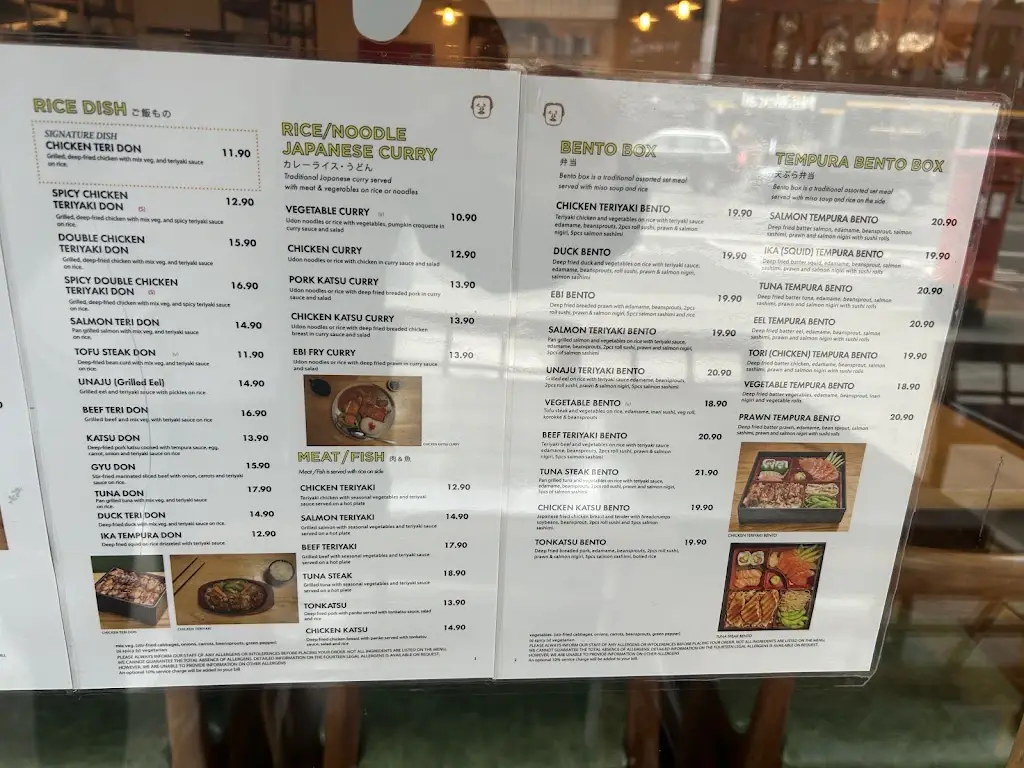 RICE DISH ご飯もの
SIGNATURE DISH
CHICKEN TERI DON 11.90
Grilled, deep-fried chicken with mix veg, and teriyaki sauce
on rice.
SPICY CHICKEN
TERIYAKI DON (S) 12.90
Grilled, deep-fried chicken with mix veg, and spicy teriyaki sauce
on rice.
DOUBLE CHICKEN
TERIYAKI DON 15.90
Grilled, deep-fried chicken with mix veg, and teriyaki sauce
on rice.
SPICY DOUBLE CHICKEN
TERIYAKI DON (S) 16.90
Grilled, deep-fried chicken with mix veg, and spicy teriyaki sauce
on rice.
SALMON TERI DON 14.90
Pan grilled salmon with mix veg, and teriyaki sauce
on rice.
TOFU STEAK DON 11.90
Deep-fried bean curd with mix veg, and teriyaki sauce
on rice.
UNAJU (Grilled Eel) 14.90
Grilled eel and teriyaki sauce with pickles on rice
BEEF TERI DON 16.90
Grilled beef and mix veg, with teriyaki sauce on rice
KATSU DON 13.90
Deep-fried pork katsu cooked with tempura sauce, egg,
carrot, onion and teriyaki sauce on rice
GYU DON 15.90
Stir-fried marinated sliced beef with onion, carrots and teriyaki
sauce on rice.
TUNA DON 17.90
Pan grilled tuna with mix veg, and teriyaki sauce
on rice.
DUCK TERI DON 14.90
Deep fried duck with mix veg, and teriyaki sauce on rice.
IKA TEMPURA DON 12.90
Deep fried squid on rice drizzeled with teriyaki sauce.
CHICKEN TERI DON
CHICKEN TERIYAKI
mix veg. (stir-fried cabbages, onions, carrots, beansprouts, green pepper)
(s) spicy (v) vegetarian
PLEASE ALWAYS INFORM OUR STAFF OF ANY ALLERGIES OR INTOLERENCES BEFORE PLACING YOUR ORDER. NOT ALL INGREDIENTS ARE LISTED ON THE MENU.
WE CANNOT GUARANTEE THE TOTAL ABSENCE OF ALLERGENS. DETAILED INFORMATION ON THE FOURTEEN LEGAL ALLERGENS IS AVAILABLE ON REQUEST.
HOWEVER, WE ARE UNABLE TO PROVIDE INFORMATION ON OTHER ALLERGENS
An optional 10% service charge will be added to your bill
RICE/NOODLE
JAPANESE CURRY
カレーライス・うどん
Traditional Japanese curry served
with meat & vegetables on rice or noodles
VEGETABLE CURRY (v) 10.90
Udon noodles or rice with vegetables, pumpkin croquette in
curry sauce and salad
CHICKEN CURRY 12.90
Udon noodles or rice with chicken in curry sauce and salad
PORK KATSU CURRY 13.90
Udon noodles or rice with deep fried breaded pork in curry
sauce and salad
CHICKEN KATSU CURRY 13.90
Udon noodles or rice with deep fried breaded chicken
breast in curry sauce and salad
EBI FRY CURRY 13.90
Udon noodles or rice with deep fried prawn in curry sauce
and salad
CHICKEN KATSU CURRY
MEAT/FISH 肉 & 魚
Meat/Fish is served with rice on side
CHICKEN TERIYAKI 12.90
Teriyaki chicken with seasonal vegetables and teriyaki
sauce served on a hot plate
SALMON TERIYAKI 14.90
Grilled salmon with seasonal vegetables and teriyaki sauce
served on a hot plate
BEEF TERIYAKI 17.90
Grilled beef with seasonal vegetables and teriyaki sauce
served on a hot plate
TUNA STEAK 18.90
Grilled tuna with seasonal vegetables and teriyaki sauce
served on a hot plate
TONKATSU 13.90
Deep fried pork with panko served with tonkatsu sauce, salad
and rice
CHICKEN KATSU 14.90
Deep fried chicken breast with panko served with tonkatsu
sauce, salad and rice
BENTO BOX
弁当
Bento box is a traditional assorted set meal
served with miso soup and rice
CHICKEN TERIYAKI BENTO 19.90
Teriyaki chicken and vegetables on rice with teriyaki sauce
edamame, beansprouts, 2pcs roll sushi, prawn & salmon
nigiri, 5pcs salmon sashimi
DUCK BENTO 19.90
Deep fried duck and vegetables on rice with teriyaki sauce,
edamame, beansprouts, roll sushi, prawn & salmon nigiri,
salmon sashimi
EBI BENTO 19.90
Deep fried breaded prawn with edamame, beansprouts, 2pcs
roll sushi, prawn & salmon nigiri, 5pcs salmon sashimi and rice
SALMON TERIYAKI BENTO 19.90
Pan grilled salmon and vegetables on rice with teriyaki sauce,
edamame, beansprouts, 2pcs roll sushi, prawn & salmon nigiri,
5pcs of salmon sashimi
UNAJU TERIYAKI BENTO 20.90
Grilled eel on rice with teriyaki sauce edamame, beansprouts,
2pcs roll sushi, prawn & salmon nigiri, 5pcs salmon sashimi
VEGETABLE BENTO (v) 18.90
Tofu steak and vegetables on rice, edamame, inari sushi, veg roll,
korokke & beansprouts
BEEF TERIYAKI BENTO 20.90
Teriyaki beef and vegetables on rice with teriyaki sauce,
edamame, beansprouts, 2pcs roll sushi, prawn and salmon
nigiri, 5pcs salmon sashimi
TUNA STEAK BENTO 21.90
Pan grilled tuna and vegetables on rice with teriyaki sauce,
edamame, beansprouts, 2pcs roll sushi, prawn & salmon nigiri,
5pcs of salmon sashimi
CHICKEN KATSU BENTO 19.90
Japanese fried chicken breast and tender with breadcrumbs
soybeans, beansprout, 2pcs roll sushi and 5pcs salmon
sashimi
TONKATSU BENTO 19.90
Deep fried breaded pork, edamame, beansprouts, 2pcs roll sushi,
prawn & salmon nigiri, 5pcs salmon sashimi, boiled rice
vegetables. (stir-fried cabbages, onions, carrots, beansprouts, green pepper)
(s) spicy (v) vegetarian
PLEASE ALWAYS INFORM OUR STAFF OF ANY ALLERGIES OR INTOLERENCES BEFORE PLACING YOUR ORDER. NOT ALL INGREDIENTS ARE LISTED ON THE MENU.
WE CANNOT GUARANTEE THE TOTAL ABSENCE OF ALLERGENS. DETAILED INFORMATION ON THE FOURTEEN LEGAL ALLERGENS IS AVAILABLE ON REQUEST.
HOWEVER, WE ARE UNABLE TO PROVIDE INFORMATION ON OTHER ALLERGENS
An optional 10% service charge will be added to your bill
TEMPURA BENTO BOX
天ぷら弁当
Bento box is a traditional assorted set meal
served with miso soup and rice on the side
SALMON TEMPURA BENTO 20.90
Deep fried batter salmon, edamame, beansprout, salmon
sashimi, prawn and salmon nigiri with sushi rolls
IKA [SQUID] TEMPURA BENTO 19.90
Deep fried batter squid, edamame, beansprout, salmon
sashimi, prawn and salmon nigiri with sushi rolls
TUNA TEMPURA BENTO 20.90
Deep fried batter tuna, edamame, beansprout, salmon
sashimi, prawn and salmon nigiri with sushi rolls
EEL TEMPURA BENTO 20.90
Deep fried batter eel, edamame, beansprout, salmon
sashimi, prawn and salmon nigiri with sushi rolls
TORI (CHICKEN) TEMPURA BENTO 19.90
Deep fried batter chicken, edamame, beansprout, salmon
sashimi, prawn and salmon nigiri with sushi rolls
VEGETABLE TEMPURA BENTO 18.90
Deep fried batter vegetables, edamame, beansprout, inari
nigiri and vegetable rolls
PRAWN TEMPURA BENTO 20.90
Deep fried batter prawn, edamame, bean sprout, salmon
sashimi, prawn and salmon nigiri with sushi rolls
CHICKEN TERIYAKI BENTO
TUNA STEAK BENTO